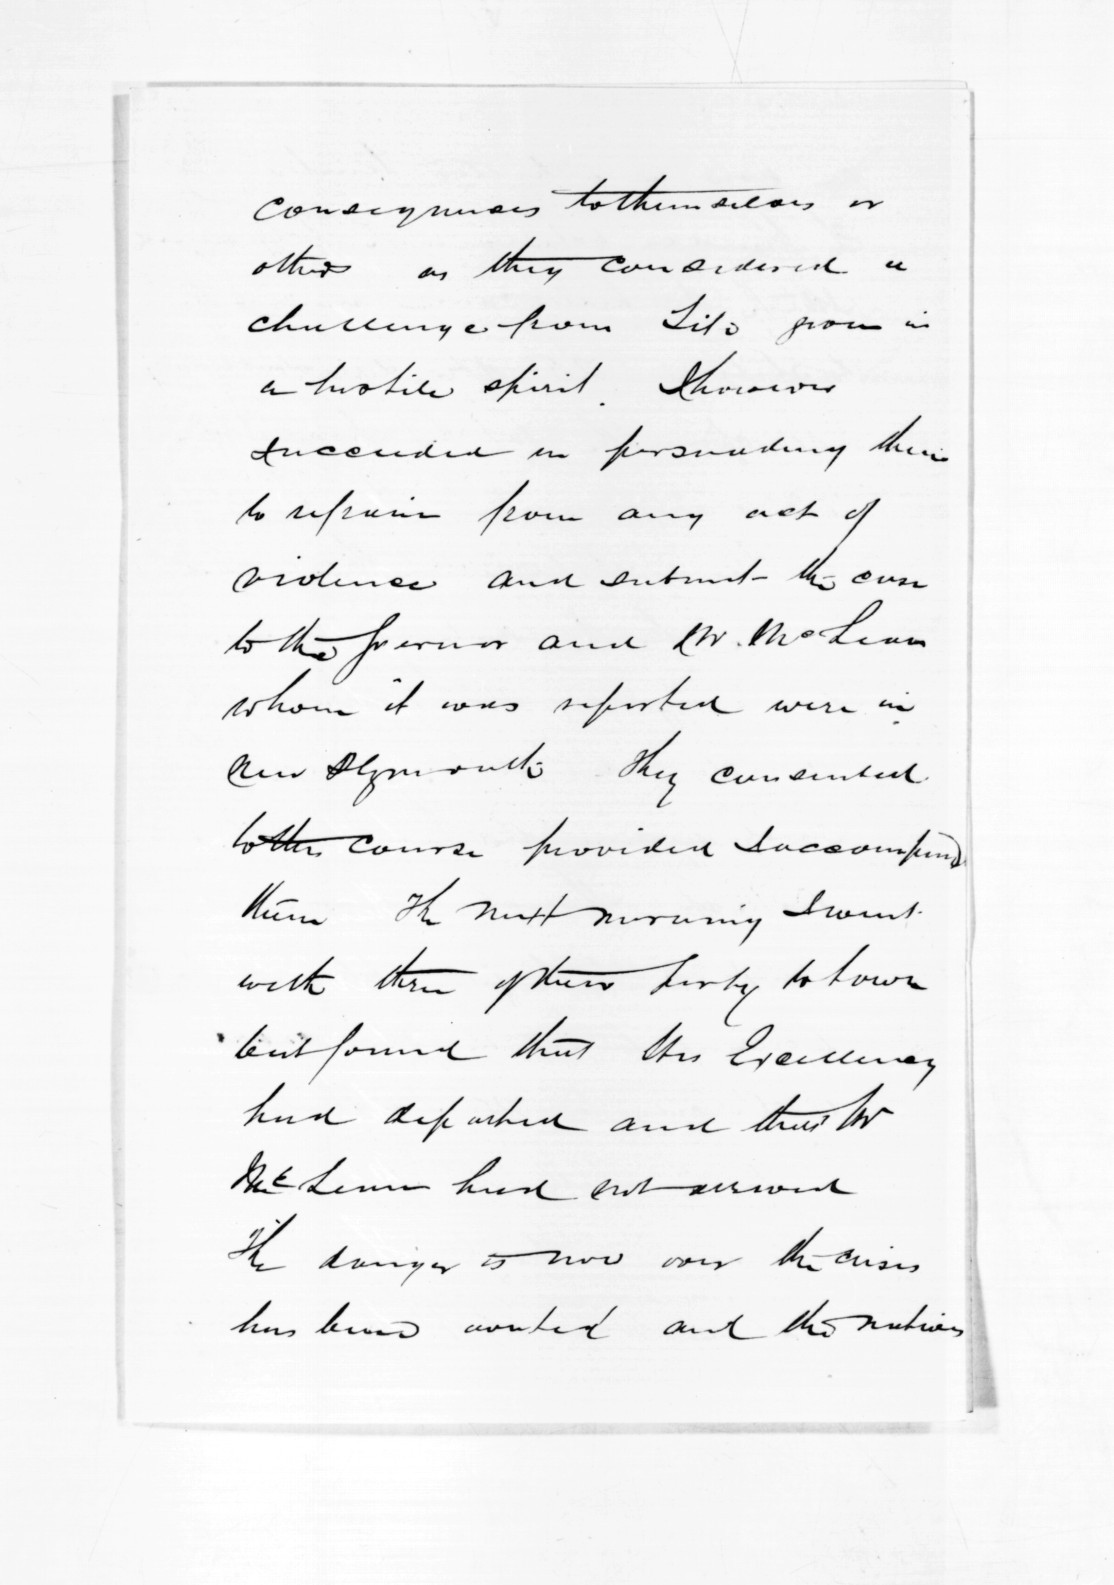 consequences to themselves or
others as they considered a
challenge from Tito given in
a hostile spirit. I however
succeeded in persuading them
to refrain from any act of
violence and submit the case
to the Governor and Mr. McLean
whom it was reported were in
New Plymouth They consented
to this course provided I accompanied
them The next morning I went
with three of their party to town
but found that His Excellency
had departed and that Mr
McLean had not arrived
The danger is now over the crisis
has been averted and the natives